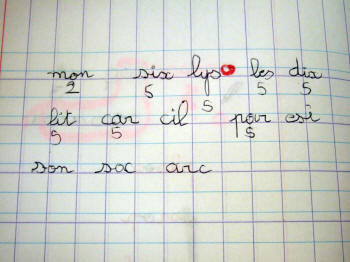 mon six lys les dix
2 5 5 5 5
lit car cil par
5 5 5
son soc arc